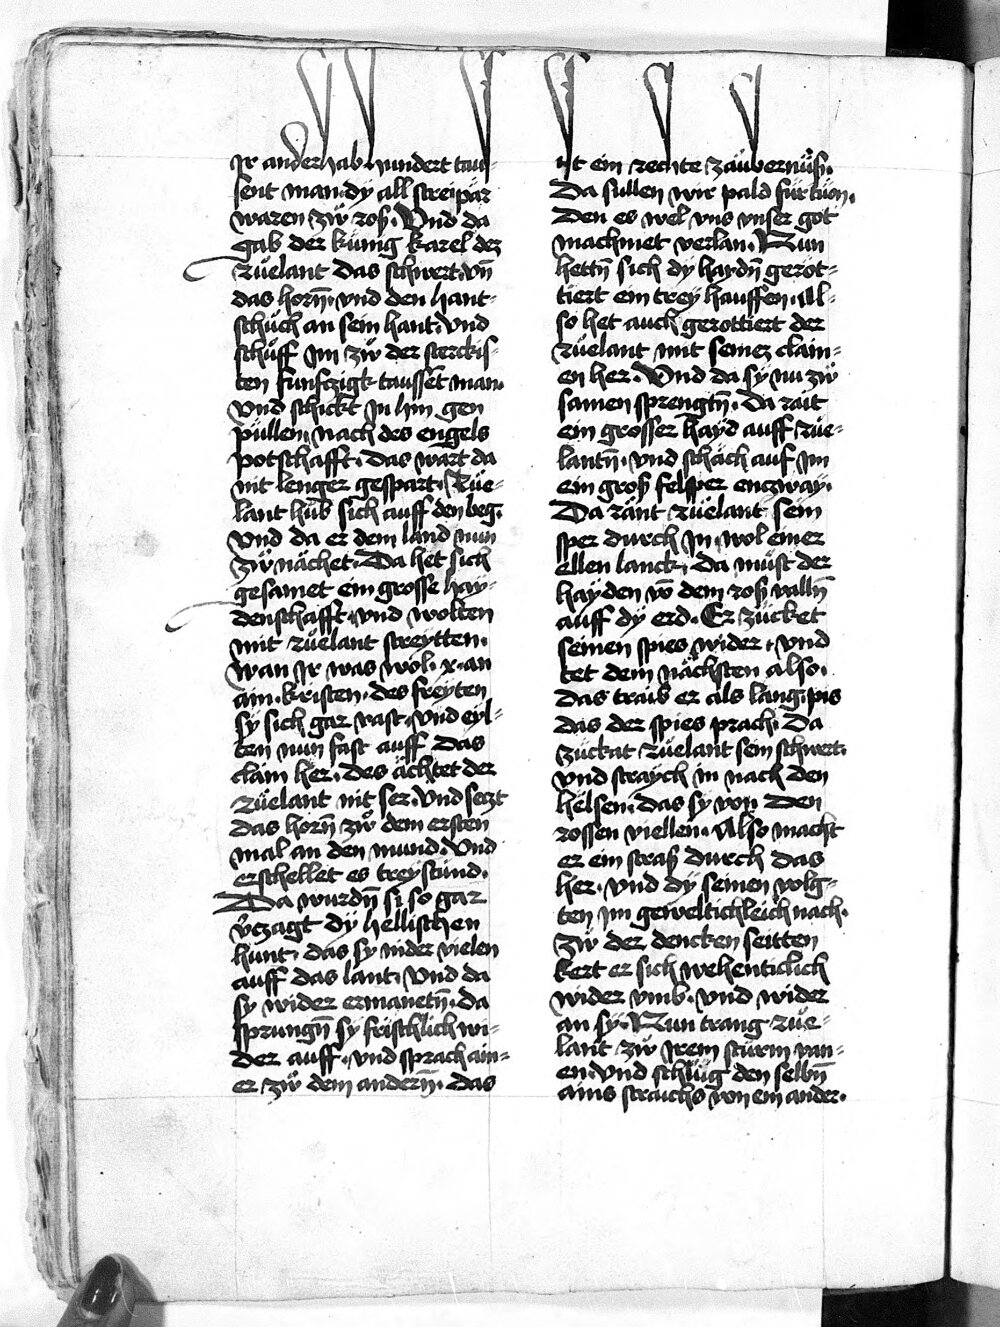 Jr anderhab hundert tau-
sent man dy all streipär
waren zw̌ roß. Vnd da
gab der küng karel dez
Rüelant das schwert vn̄
das horn̄. vnd den hant-
schůch an sein hant. Vnd
schůff Jm zw̌ der sterckis-
ten funfczigk taussēt man.
Vnd schickt Jn hin gen
püllen nach des engels
potschafft. Das wart da
nit lenger gespart. Rüe-
lant hůb sich auff den beg.
Vnd da er dem land nun
zw̌ nächet. Da het sich
gesamet ein grosse hay-
denschafft. vnd wolten
mit rüelant streytten.
wan Jr was wol .x. an
ain kristen. des freyten
sy sich gar vast. vnd eyl-
ten nun fast auff das
clain her. des ächtet der
rüelant nit ser. Vnd seczt
das horn̄ zw̌ dem ersten
mal an den mund. Vnd
erschellet es trey stund.
Da wurdn̄ si so gar
v̄czagt dy hellischen
hunt. das sy nider vielen
auff das lant. Vnd da
sy wider ermanetn̄. da
sprungn̄ sy frischlich wi-
der auff. vnd sprach ain-
er zw̌ dem andern̄. das
ist ein rechte zaubernüß.
Da sullen wir pald für tuon.
Den es wel vns vnser got
machmet verlan. Nun
hettn̄ sich dy haydn̄ gerot-
tiert ein trey hauffen. Al-
so het auch gerottiert der
rüelant mit seinez clain-
en her. Vnd da sy nu zw̌
samen sprengtn̄. Da rait
ein grosser hayd auff rüe-
lantn̄. vnd stäch auf im
ein groß felsper enczway.
Da ränt rüelant sein
sper durch Jn wol einer
ellen lanck. da můst der
hayden vō dem roß valln̄
auff dy erd. Er zücket
seinen spies wider. vnd
tet dem nächsten also.
Das traib er als lang pis
das der spies prach. Da
zückat rüelant sein schwert.
Vnd straÿch in nach den
helsen. das sy von den
rossen viellen. Also macht
er ein straß durch das
her. vnd dy seinen volg-
ten im geweltichleich nach.
Zw̌ der dencken seitten
kert er sich wehenticlich
wider vmb. vnd wider
an sy. Nun trang rüe-
lant zw̌ Jrem sturm van-
en vnd schlůg den selbn̄
ains straichs von ein ander.